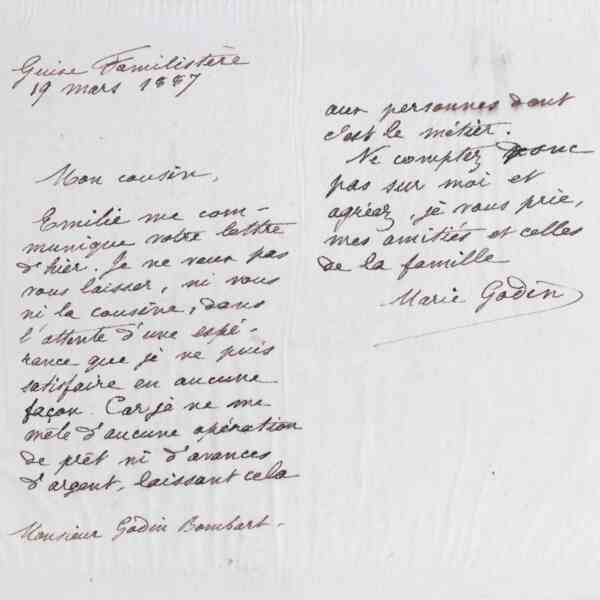 Guise Familistère
19 mars 1887
Mon cousin,
Emilie me com-
munique votre lettre
d'hier. Je ne veux pas
vous laisser, ni vous
ni la cousine, dans
l'attente d'une espé-
rance que je ne puis
satisfaire en aucune
façon. Car je ne me
mêle d'aucune opération
de prêt ni d'avances
d'argent, laissant cela
Monsieur Godin Bombart.
aux personnes dont
c'est le métier.
Ne comptez donc
pas sur moi et
agréez, je vous prie,
mes amitiés et celles
de la famille
Marie Godin